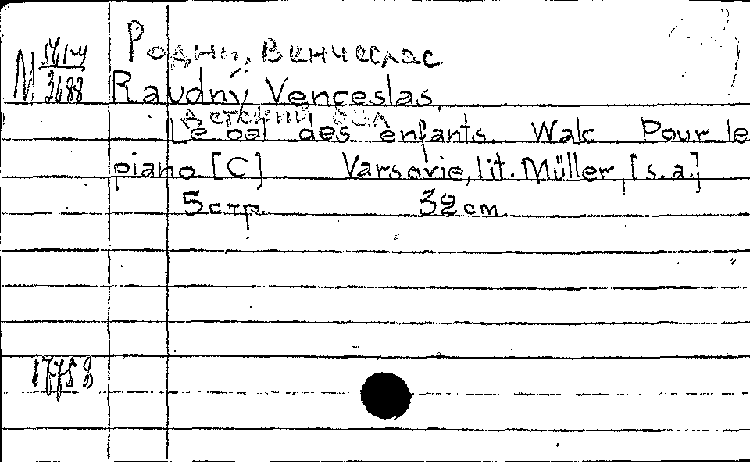 Родни, Венчеслас
Raudný Venceslas.
Детский бал
Le bal des enfants. Walc. Pour le
piano [C] Varsovie, lit. Müller, [s.a.]
5 стр. 32 cm.